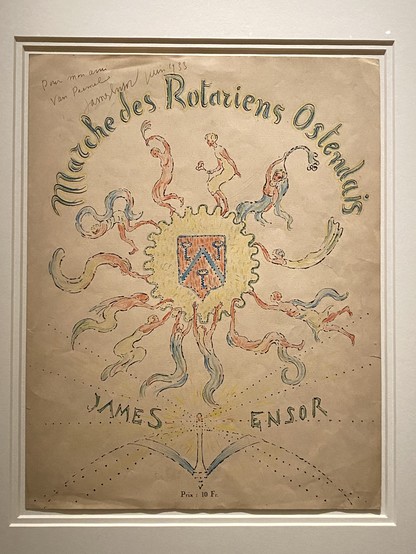 Pour mon ami
Van
James Ensor juin 1933
Marche des Rotariens Ostendais
JAMES ENSOR
Prix : 10 Fr.